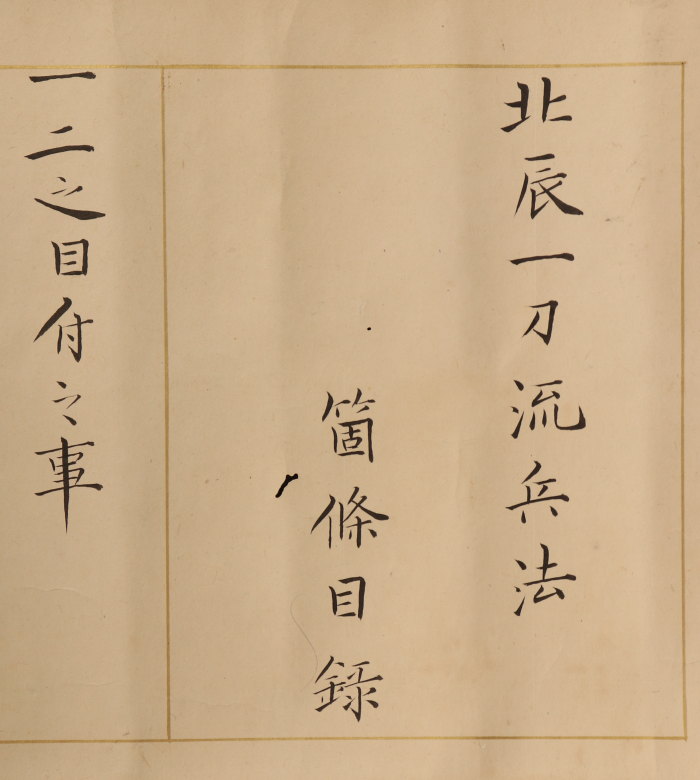 北辰一刀流兵法
箇條目録
一二之目付之事